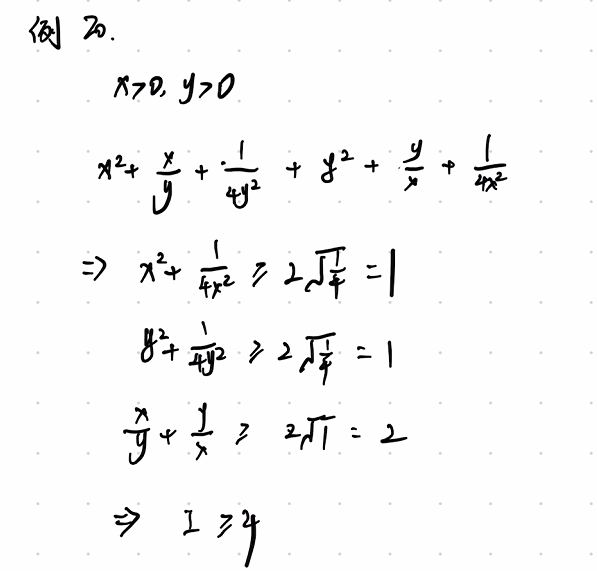 例 20.
x>0, y>0
x² + x/y + 1/4y² + y² + y/x + 1/4x²
⇒ x² + 1/4x² ≥ 2√(1/4) = 1
y² + 1/4y² ≥ 2√(1/4) = 1
x/y + y/x ≥ 2√1 = 2
⇒ I ≥ 4